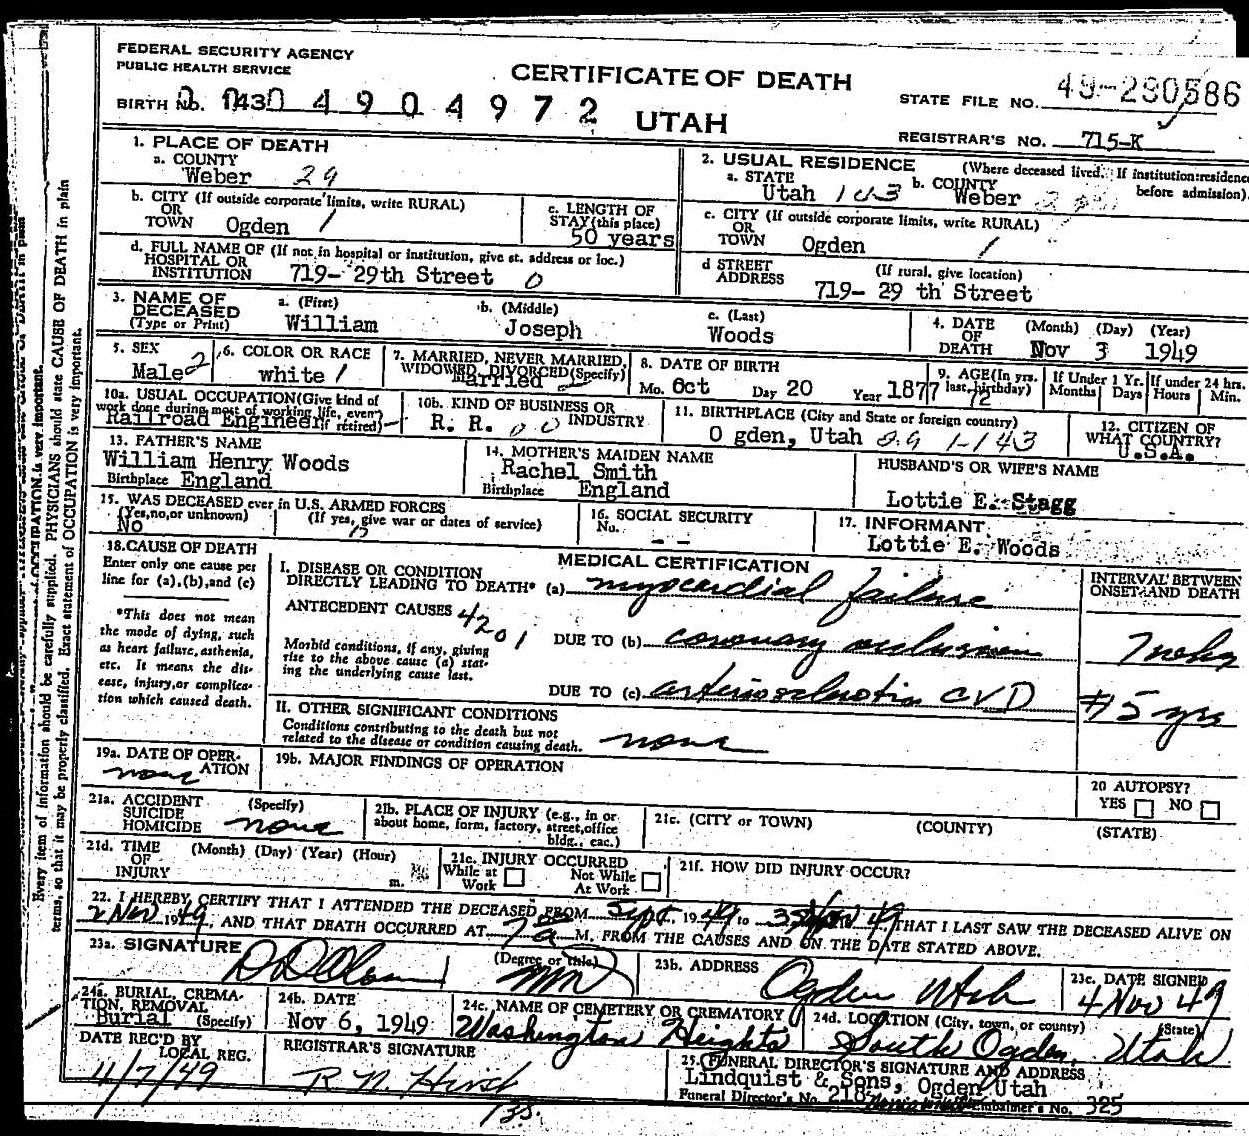 FEDERAL SECURITY AGENCY
PUBLIC HEALTH SERVICE
CERTIFICATE OF DEATH
STATE FILE NO. 49-280586
BIRTH NO. 0430 4904972
UTAH
REGISTRAR'S NO. 715-K
1. PLACE OF DEATH
a. COUNTY
Weber 29
b. CITY (If outside corporate limits, write RURAL)
OR
TOWN Ogden 1
c. LENGTH OF
STAY (this place)
50 years
d. FULL NAME OF (If not in hospital or institution, give st. address or loc.)
HOSPITAL OR
INSTITUTION 719- 29th Street 0
2. USUAL RESIDENCE (Where deceased lived. If institution: residence
before admission).
a. STATE
Utah 143
b. COUNTY
Weber
c. CITY (If outside corporate limits, write RURAL)
OR
TOWN Ogden 1
d STREET (If rural, give location)
ADDRESS
719- 29 th Street
3. NAME OF
DECEASED
(Type or Print)
a. (First)
William
b. (Middle)
Joseph
c. (Last)
Woods
4. DATE (Month) (Day) (Year)
OF
DEATH Nov 3 1949
5. SEX
Male 2
6. COLOR OR RACE
white 1
7. MARRIED, NEVER MARRIED,
WIDOWED, DIVORCED (Specify)
Married
8. DATE OF BIRTH
Mo. Oct Day 20 Year 1877
9. AGE (In yrs.
last birthday)
72
If Under 1 Yr.
Months Days
If under 24 hrs.
Hours Min.
10a. USUAL OCCUPATION (Give kind of
work done during most of working life, even
if retired)
Railroad Engineer
10b. KIND OF BUSINESS OR
INDUSTRY
R. R.
11. BIRTHPLACE (City and State or foreign country)
O gden, Utah 29 1-143
12. CITIZEN OF
WHAT COUNTRY?
U.S.A.
13. FATHER'S NAME
William Henry Woods
Birthplace England
14. MOTHER'S MAIDEN NAME
Rachel Smith
Birthplace England
HUSBAND'S OR WIFE'S NAME
Lottie E. Stagg
15. WAS DECEASED ever in U.S. ARMED FORCES
(Yes, no, or unknown) (If yes, give war or dates of service)
No
16. SOCIAL SECURITY
No. - -
17. INFORMANT
Lottie E. Woods
18. CAUSE OF DEATH
Enter only one cause per
line for (a), (b), and (c)
*This does not mean
the mode of dying, such
as heart failure, asthenia,
etc. It means the dis-
ease, injury, or complica-
tion which caused death.
MEDICAL CERTIFICATION
INTERVAL BETWEEN
ONSET AND DEATH
I. DISEASE OR CONDITION
DIRECTLY LEADING TO DEATH* (a) myocardial failure
ANTECEDENT CAUSES 4201
Morbid conditions, if any, giving
rise to the above cause (a) stat-
ing the underlying cause last.
DUE TO (b) coronary occlusion 7 wks
DUE TO (c) arteriosclerotic CVD 5 yrs
II. OTHER SIGNIFICANT CONDITIONS
Conditions contributing to the death but not
related to the disease or condition causing death. none
19a. DATE OF OPER-
ATION none
19b. MAJOR FINDINGS OF OPERATION
20 AUTOPSY?
YES NO
21a. ACCIDENT (Specify)
SUICIDE
HOMICIDE none
21b. PLACE OF INJURY (e.g., in or
about home, form, factory, street, office
bldg., eac.)
21c. (CITY or TOWN) (COUNTY) (STATE)
21d. TIME (Month) (Day) (Year) (Hour)
OF
INJURY m.
21e. INJURY OCCURRED
While at Not While
Work At Work
21f. HOW DID INJURY OCCUR?
22. I HEREBY CERTIFY THAT I ATTENDED THE DECEASED FROM Sept, 1949 to 3 Nov 49 THAT I LAST SAW THE DECEASED ALIVE ON
2 Nov 1949, AND THAT DEATH OCCURRED AT 7 a M. FROM THE CAUSES AND ON THE DATE STATED ABOVE.
23a. SIGNATURE (Degree or title)
MD
23b. ADDRESS
Ogden Utah
23c. DATE SIGNED
4 Nov 49
24a. BURIAL, CREMA-
TION, REMOVAL
Burial (Specify)
24b. DATE
Nov 6, 1949
24c. NAME OF CEMETERY OR CREMATORY
Washington Heights
24d. LOCATION (City, town, or county) (State)
South Ogden, Utah
DATE REC'D BY
LOCAL REG.
11/7/49
REGISTRAR'S SIGNATURE
25. FUNERAL DIRECTOR'S SIGNATURE AND ADDRESS
Lindquist & Sons, Ogden Utah
Funeral Director's No. 218 Embalmer's No. 325
Every item of information should be carefully supplied. PHYSICIANS should state CAUSE OF DEATH in plain
terms, so that it may be properly classified. Exact statement of OCCUPATION is very important.